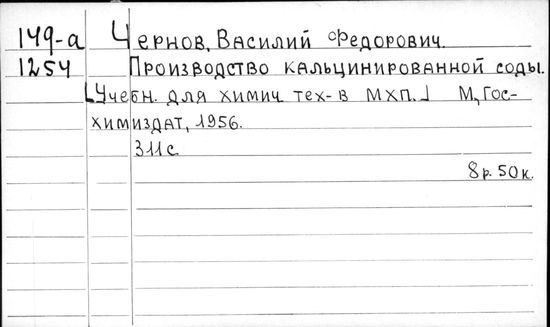 149-а Чернов, Василий Федорович.
1254 Производство кальцинированной соды.
[Учебн. для химич. тех-в МХП.] М., Гос-
химиздат, 1956.
311 с.
8 р. 50 к.